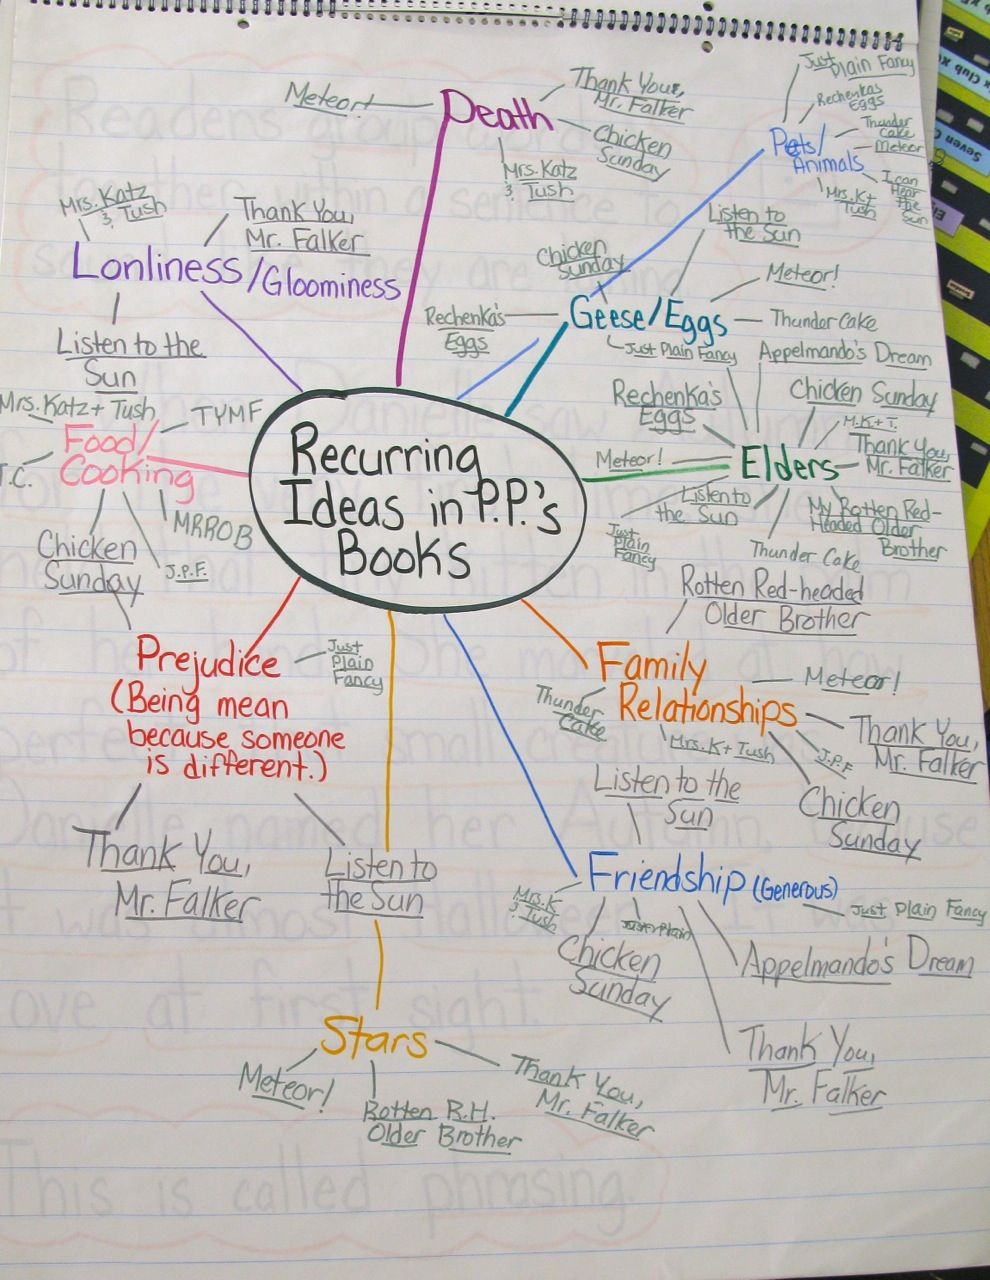 Recurring
Ideas in P.P.'s
Books
Death
Meteor!
Thank You,
Mr. Falker
Chicken
Sunday
Mrs. Katz
& Tush
Pets/
Animals
Just
Plain Fancy
Rechenkas
Eggs
Thunder
Cake
Meteor
I can
Hear
the
Sun
Mrs. K+
Tush
Geese/Eggs
Chicken
Sunday
Listen to
the Sun
Meteor!
Thunder Cake
Just Plain Fancy
Rechenka's
Eggs
Elders
Appelmando's Dream
Chicken Sunday
M.K + T.
Thank You,
Mr. Falker
My Rotten Red-
Headed Older
Brother
Thunder Cake
Listen to
the Sun
Just
Plain
Fancy
Meteor!
Rechenka's
Eggs
Family
Relationships
Rotten Red-headed
Older Brother
Meteor!
Thank You,
Mr. Falker
J.P.F
Chicken
Sunday
Mrs. K + Tush
Thunder
Cake
Friendship (Generous)
Listen to the
Sun
Just Plain Fancy
Appelmando's Dream
Thank You,
Mr. Falker
Just Plain
Chicken
Sunday
Mrs. K
& Tush
Stars
Meteor!
Rotten R.H.
Older Brother
Thank You,
Mr. Falker
Prejudice
(Being mean
because someone
is different.)
Just
Plain
Fancy
Thank You,
Mr. Falker
Listen to
the Sun
Food/
Cooking
Mrs. Katz + Tush
TYMF
T.C.
Chicken
Sunday
J.P.F.
MRROB
Lonliness/Gloominess
Mrs. Katz
& Tush
Thank You,
Mr. Falker
Listen to the
Sun
This is called phrasing.